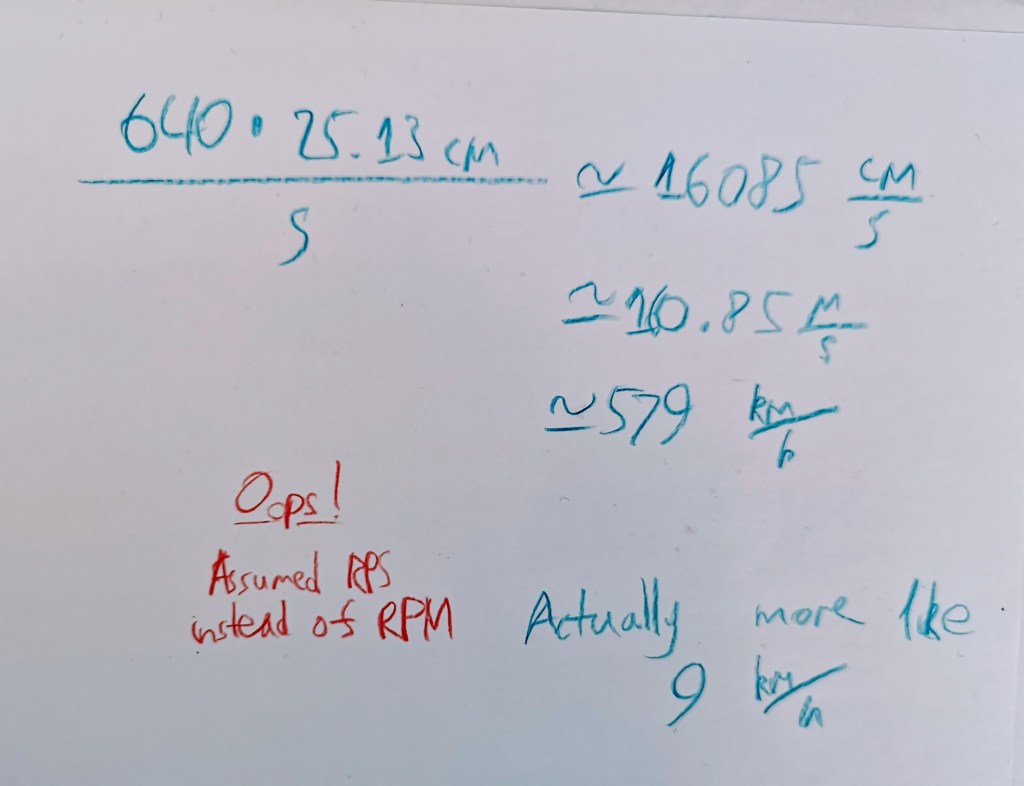 640 · 25.13 cm
s
≃ 16085 cm/s
≃ 10.85 m/s
≃ 579 km/h
Oops!
Assumed RPS
instead of RPM
Actually more like
9 km/h